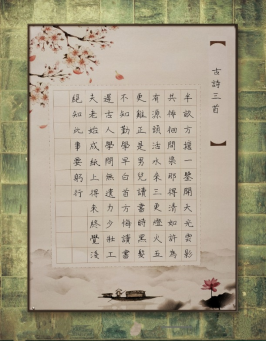 古詩三首
半畝方塘一鑒開天光雲影
共徘徊問渠那得清如許為
有源頭活水來三更燈火五
更雞正是男兒讀書時黑髮
不知勤學早白首方悔讀書
遲古人學問無遺力少壯工
夫老始成紙上得來終覺淺
絕知此事要躬行